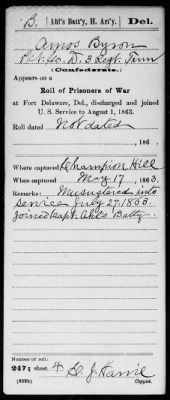 B. Ahl's Batt'y, H. Art'y. Del.
Amos Byron
Pvt. Co. D. 3 Regt. Tenn
(Confederate.)
Appears on a
Roll of Prisoners of War
at Fort Delaware, Del., discharged and joined
U. S. Service to August 1, 1863.
Roll dated
Not dated
, 186
Where captured Champion Hill
When captured May 17, 1863.
Remarks: Mustered into
service July 27, 1863.
Joined Capt. Ahl's Batty.
Number of roll:
247; sheet 4
(639b) Copyist.